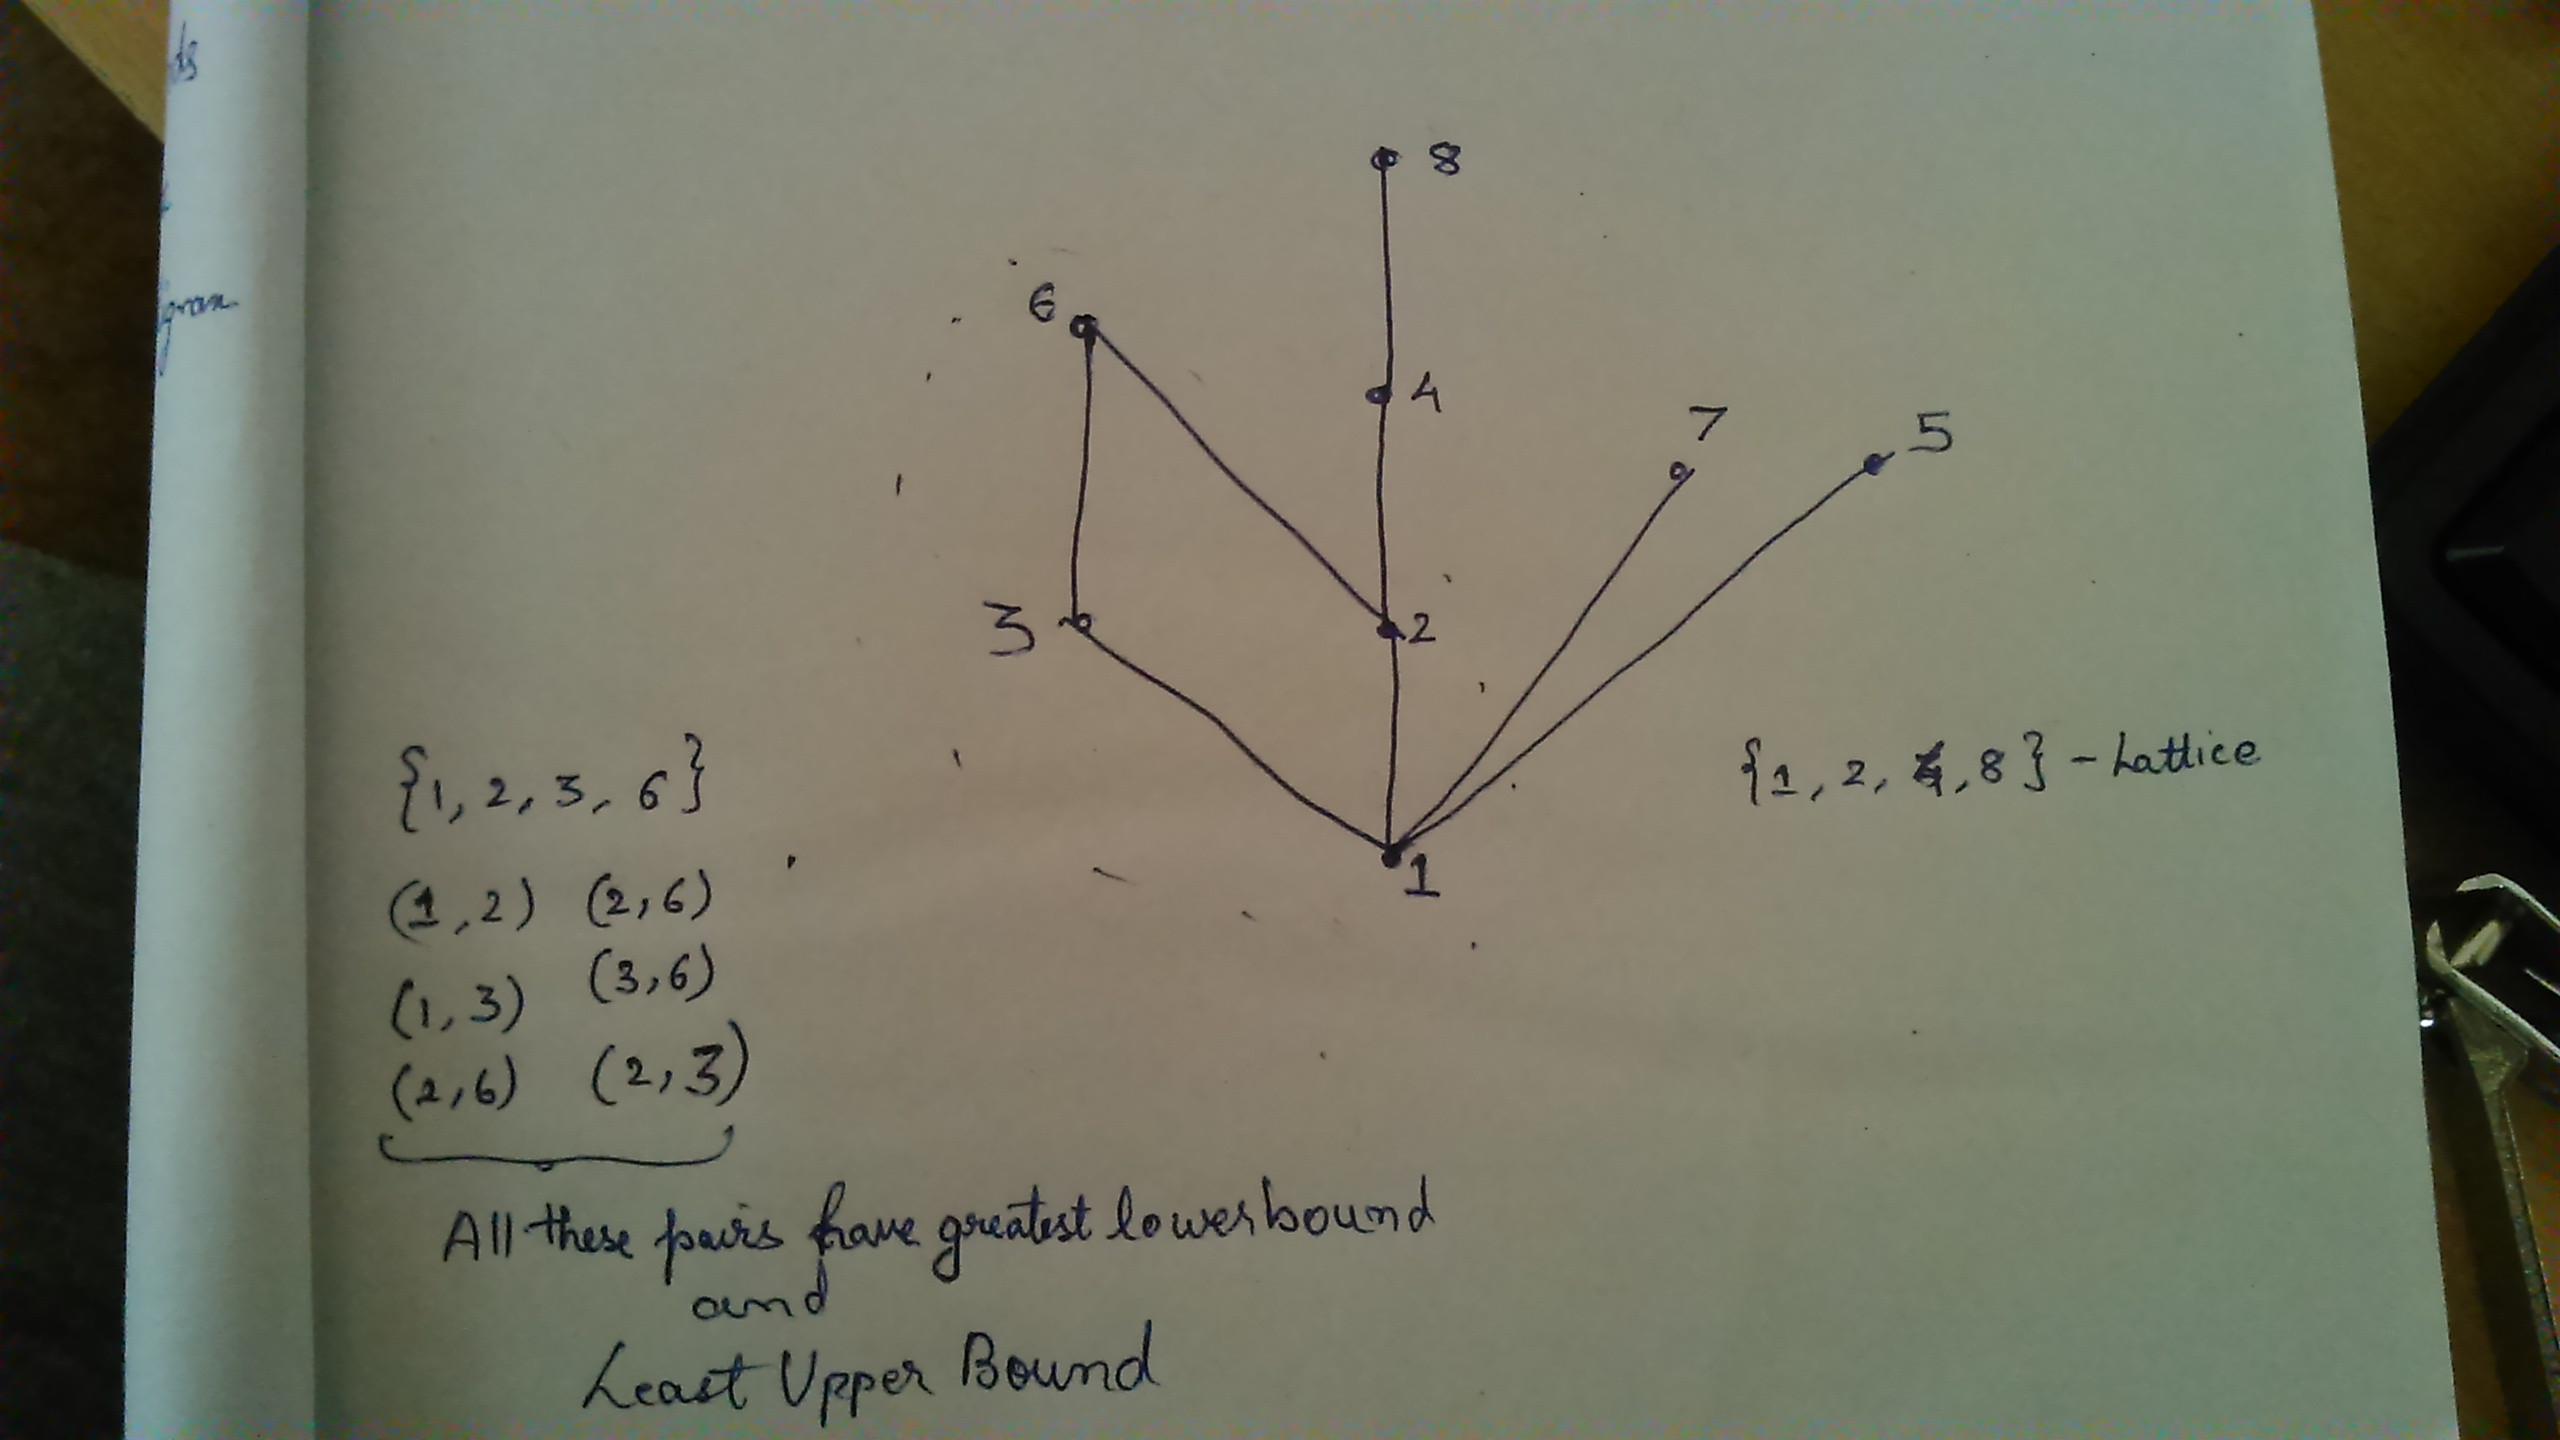 8
6
4
7
5
3
2
1
{1, 2, 3, 6}
{1, 2, 4, 8} - Lattice
(1, 2) (2, 6)
(1, 3) (3, 6)
(2, 6) (2, 3)
All these pairs have greatest lowerbound
and
Least Upper Bound